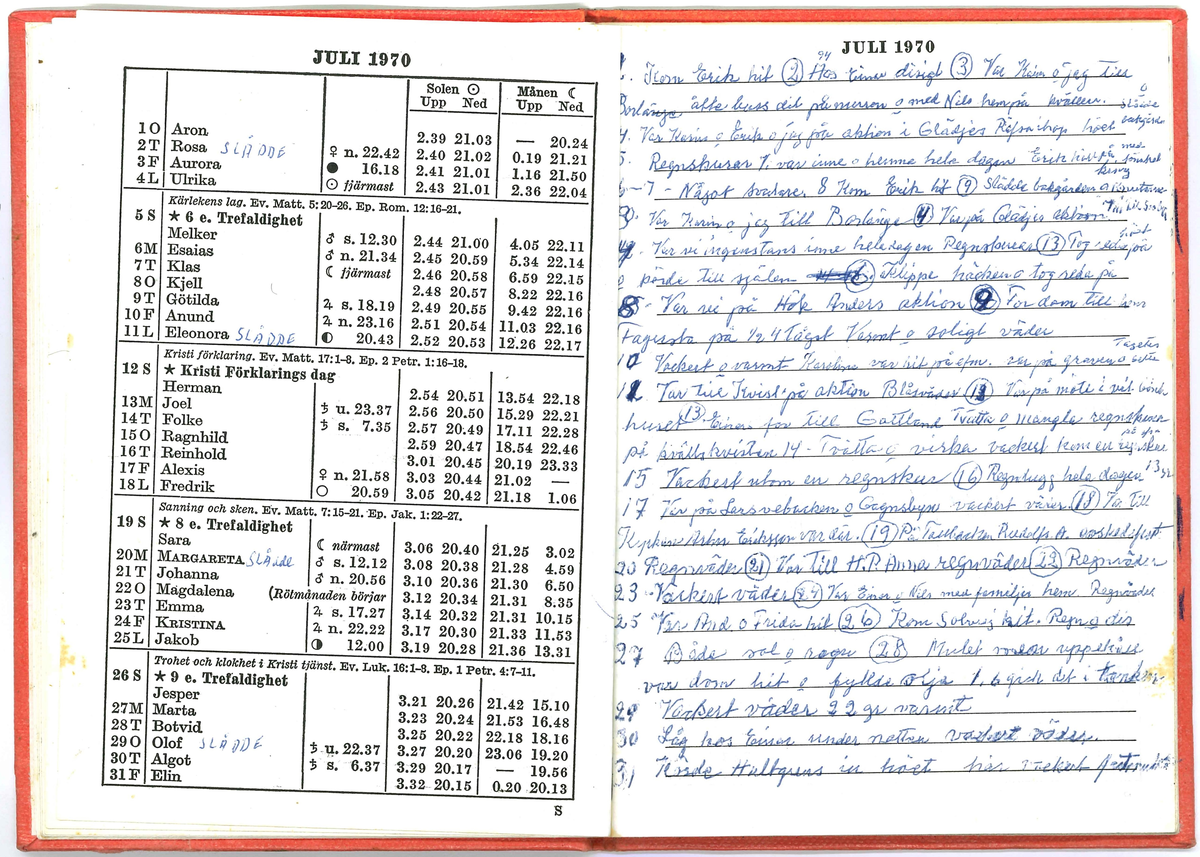 JULI 1970
Solen ☉ Månen ☾
Upp Ned Upp Ned
1 O Aron 2.39 21.03 — 20.24
2 T Rosa SLÅDDE ♀ n. 22.42 2.40 21.02 0.19 21.21
3 F Aurora ● 16.18 2.41 21.01 1.16 21.50
4 L Ulrika ☉ fjärmast 2.43 21.01 2.36 22.04
Kärlekens lag. Ev. Matt. 5:20-26. Ep. Rom. 12:16-21.
5 S ★ 6 e. Trefaldighet
Melker ♂ s. 12.30 2.44 21.00 4.05 22.11
6 M Esaias ♂ n. 21.34 2.45 20.59 5.34 22.14
7 T Klas ☾ fjärmast 2.46 20.58 6.59 22.15
8 O Kjell 2.48 20.57 8.22 22.16
9 T Götilda ♃ s. 18.19 2.49 20.55 9.42 22.16
10 F Anund ♃ n. 23.16 2.51 20.54 11.03 22.16
11 L Eleonora SLÅDDE ◐ 20.43 2.52 20.53 12.26 22.17
Kristi förklaring. Ev. Matt. 17:1-8. Ep. 2 Petr. 1:16-18.
12 S ★ Kristi Förklarings dag
Herman 2.54 20.51 13.54 22.18
13 M Joel ♄ u. 23.37 2.56 20.50 15.29 22.21
14 T Folke ♄ s. 7.35 2.57 20.49 17.11 22.28
15 O Ragnhild 2.59 20.47 18.54 22.46
16 T Reinhold 3.01 20.45 20.19 23.33
17 F Alexis ♀ n. 21.58 3.03 20.44 21.02 —
18 L Fredrik ○ 20.59 3.05 20.42 21.18 1.06
Sanning och sken. Ev. Matt. 7:15-21. Ep. Jak. 1:22-27.
19 S ★ 8 e. Trefaldighet
Sara ☾ närmast 3.06 20.40 21.25 3.02
20 M MARGARETA SLÅdde ♂ s. 12.12 3.08 20.38 21.28 4.59
21 T Johanna ♂ n. 20.56 3.10 20.36 21.30 6.50
22 O Magdalena (Rötmånaden börjar 3.12 20.34 21.31 8.35
23 T Emma ♃ s. 17.27 3.14 20.32 21.31 10.15
24 F KRISTINA ♃ n. 22.22 3.17 20.30 21.33 11.53
25 L Jakob ◑ 12.00 3.19 20.28 21.36 13.31
Trohet och klokhet i Kristi tjänst. Ev. Luk. 16:1-8. Ep. 1 Petr. 4:7-11.
26 S ★ 9 e. Trefaldighet
Jesper 3.21 20.26 21.42 15.10
27 M Marta 3.23 20.24 21.53 16.48
28 T Botvid 3.25 20.22 22.18 18.16
29 O Olof SLÅDDE ♄ u. 22.37 3.27 20.20 23.06 19.20
30 T Algot ♄ s. 6.37 3.29 20.17 — 19.56
31 F Elin 3.32 20.15 0.20 20.13
S
JULI 1970
Kom Erik hit 2 Hos Einar disigt 3 Var Karin o jag till
Borlänge åkte buss dit på morron o med Nils hem på kvällen.
4. Var Karin o Erik o jag på aktion i Glädjes Räfsa ihop höet
5. Regnskurar var inne o hemma hela dagen Erik
6-7 - Något svalare. 8 Kom Erik hit 9 Slådde bakgården o
Var Karin o jag till Borlänge 4 Var på Glädjes aktion
Var vi ingenstans inne hela dagen Regnskurar 13 Tog på
o körde till själen Klippe häcken o tog reda på
8 - Var vi på Hök Anders aktion 9 For dom till
Fagersta på 1/2 4 tåget Varmt o soligt väder
10 Vackert o varmt Karolina var hit på efm. var på graven o
Var till Kvist på aktion Blåsväder 12 Var på möte i
huset 13. Einar for till Gottland Tvätta o mangla regnskurar
på kvällskvisten 14 - Tvätta o virka vackert kom en regnskur
15 Vackert utom en regnskur 16 Regndugg hela dagen 13 gr
17 Var på Larsvebacken o Gagnsbyn vackert väder 18 Va till
Arthur Eriksson var där. 19 På Tallbacken Rudolfs
20 Regnväder 21 Var till H.P. Anna regnväder 22 Regnväder
23 - Vackert väder 24 Var Einar o Nils med familjer hem. Regnväder
25 Var And. o Frida hit 26 Kom Solveig hit. Regn o dis
27 Både sol o regn 28 Mulet men uppehåll
var dom hit o fyllde olja 1,6 gick det i tanken
29 Vackert väder 22 gr varmt
30 Låg hos Einar under natten vackert väder.
31 Körde Hallgrens in höet här vackert